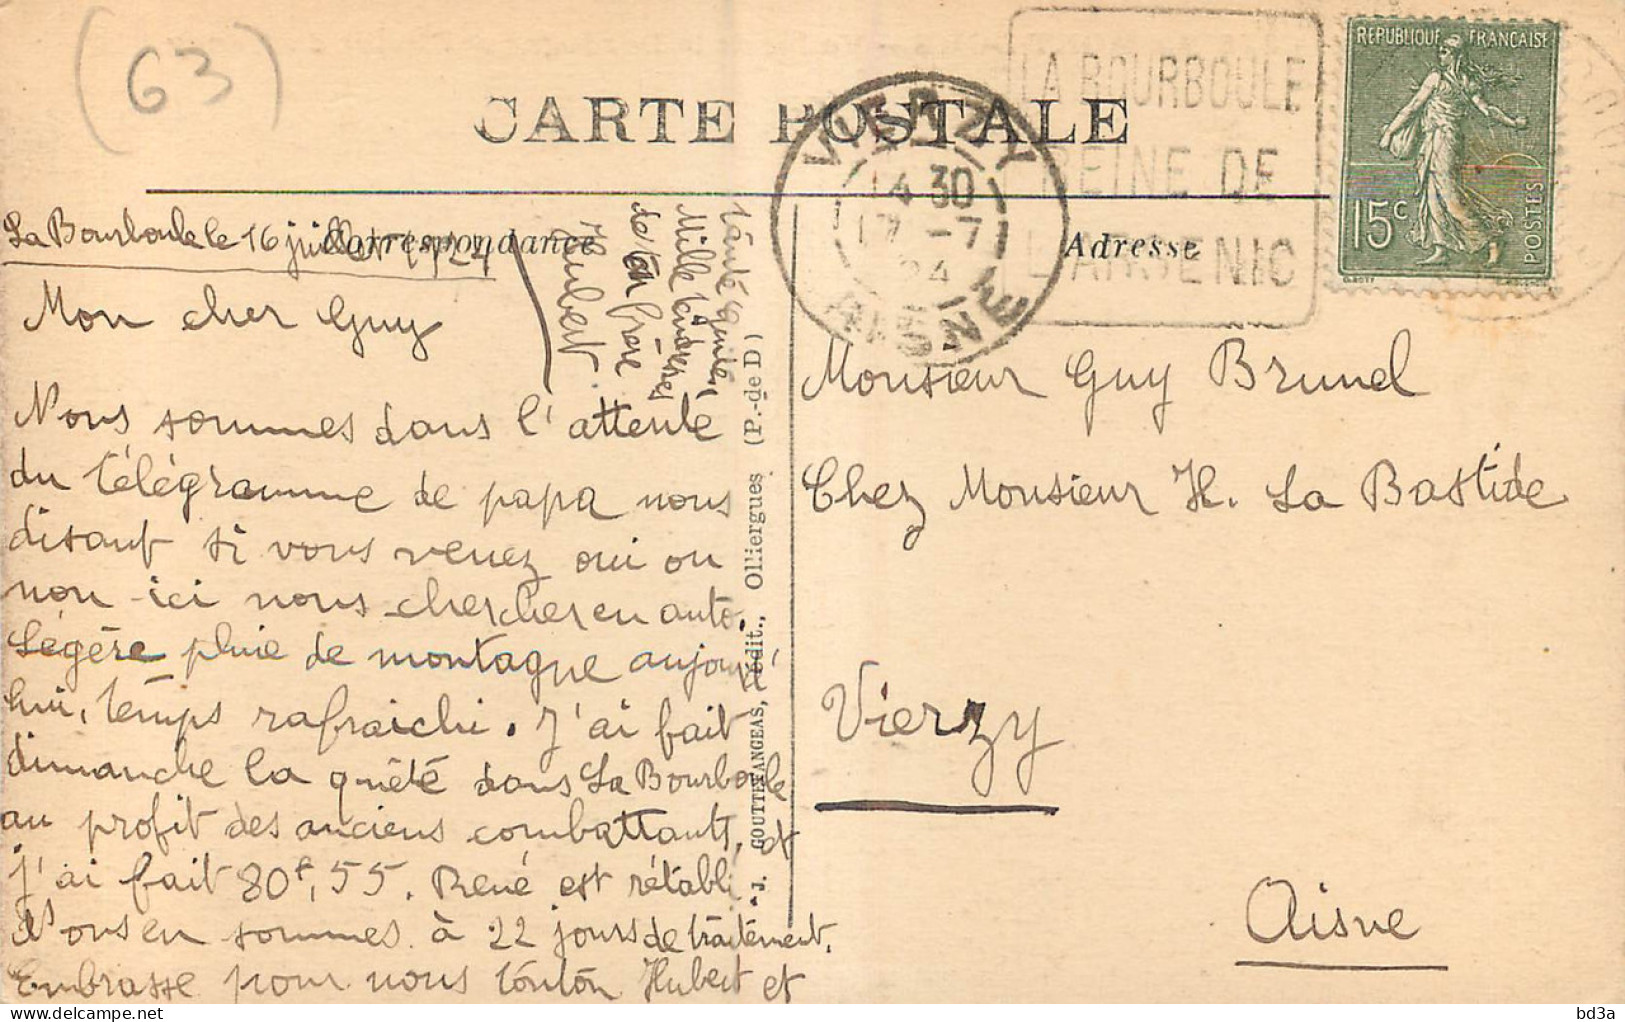 (63)
CARTE POSTALE
LA BOURBOULE
REINE DE
L'ARSENIC
VIERZY
14 30
17 -7
24
AISNE
REPUBLIQUE FRANCAISE
15c
POSTES
Correspondance
Adresse
La Bourboule le 16 juillet 1924
Mon cher Guy
Nous sommes dans l'attente
du télégramme de papa nous
disant si vous venez oui ou
non ici nous chercher en auto.
Légère pluie de montagne aujourd'
hui, temps rafraichi. J'ai fait
dimanche la quête dans La Bourboule
au profit des anciens combattants, et
j'ai fait 80f,55. René est rétabli
Nous en sommes à 22 jours de traitement.
Embrasse pour nous tonton Hubert et
tante
Mille tendresses
de ton frère
Hubert
J. GOUTTEFANGEAS, édit., Olliergues (P.-de D)
Monsieur Guy Brunel
Chez Monsieur H. La Bastide
Vierzy
Aisne
bd3a